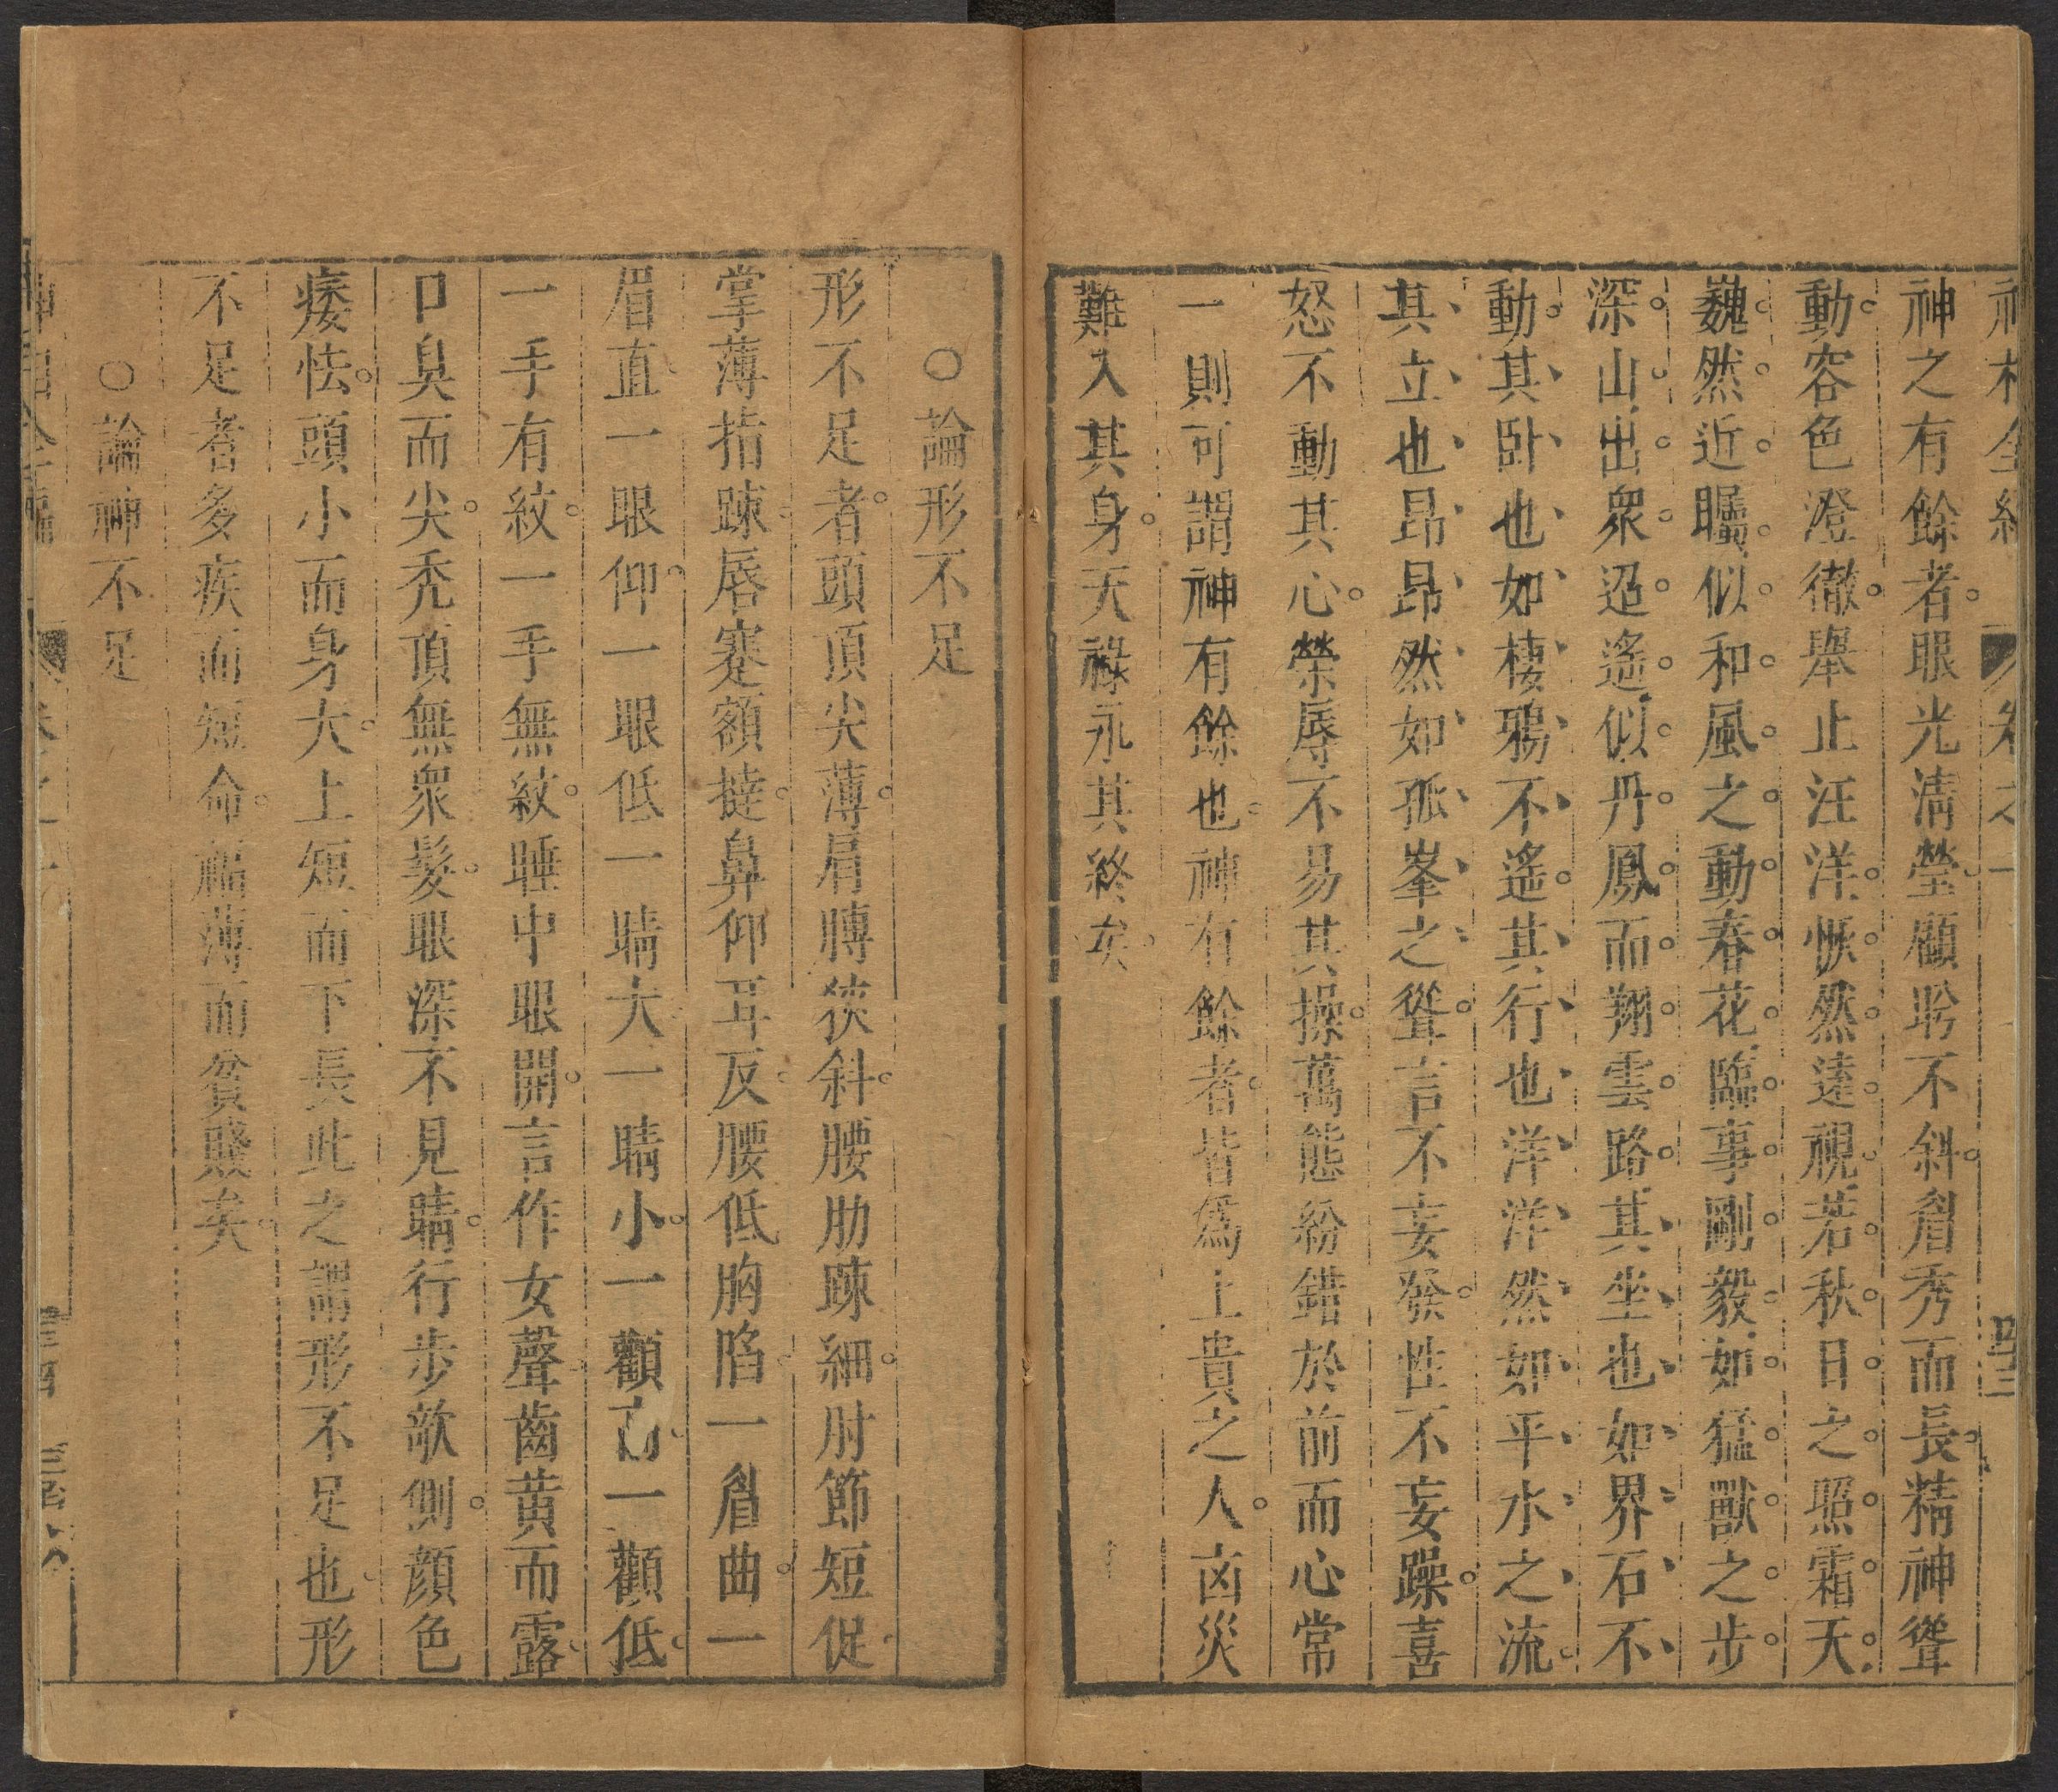 神之有餘者眼光清瑩顧盻不斜眉秀而長精神聳
動容色澄徹舉止汪洋恢然遠視若秋日之照霜天
巍然近矚似和風之動春花臨事剛毅如猛獸之步
深山出衆迢遙似丹鳳而翔雲路其坐也如界石不
動其卧也如棲鴉不遙其行也洋洋然如平水之流
其立也昂昂然如孤峯之聳言不妄發性不妄躁喜
怒不動其心榮辱不易其操萬態紛錯於前而心常
一則可謂神有餘也神有餘者皆爲上貴之人凶災
難入其身天祿永其終矣
○論形不足
形不足者頭頂尖薄肩膊狹斜腰肋踈細肘節短促
掌薄指踈唇蹇額撻鼻仰耳反腰低胸陷一眉曲一
眉直一眼仰一眼低一睛大一睛小一顴高一顴低
一手有紋一手無紋睡中眼開言作女聲齒黄而露
口臭而尖禿頂無衆髮眼深不見睛行步欹側顔色
痿怯頭小而身大上短而下長此之謂形不足也形
不足者多疾而短命福薄而貧賤矣
○論神不足